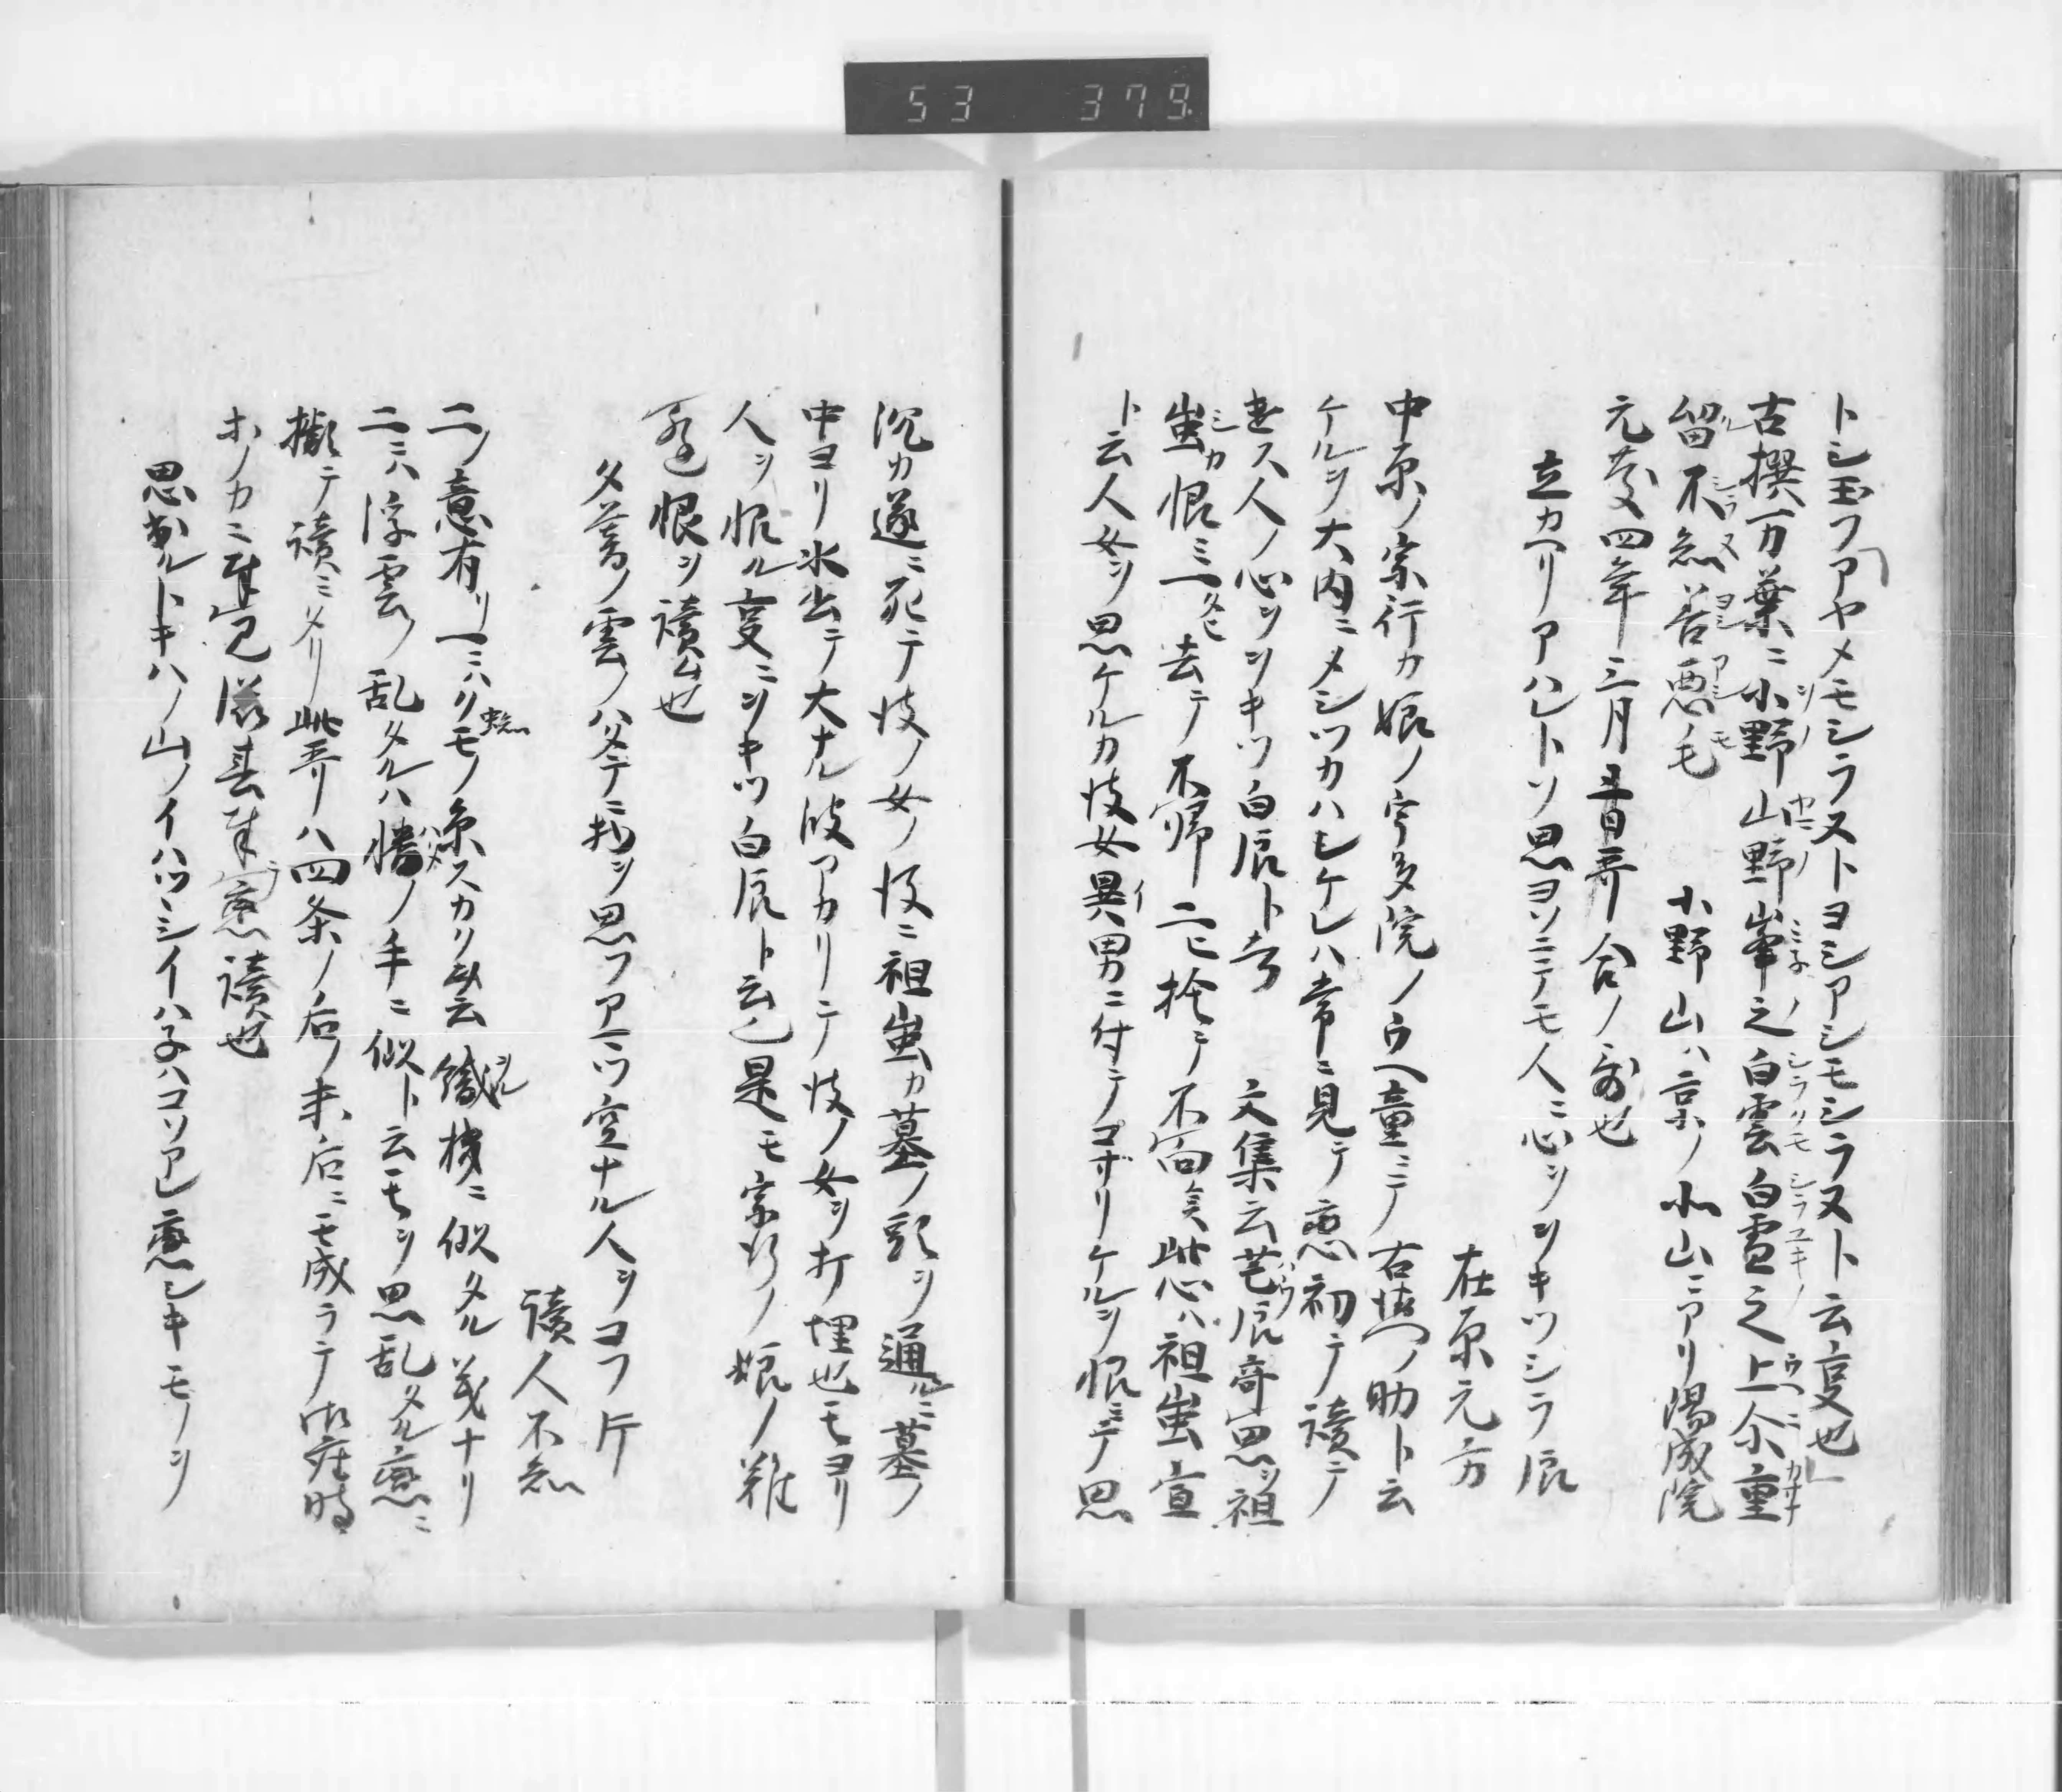 53 379
トシ玉フアヤメモシラストヨシアシモシラヌト云叓也
古撰万葉ニ小野山野峯之白雲白雪之上尒重
留不知善悪毛 小野山ハ京ノ北山ニアリ陽成院
元慶四年三月 哥合ノ哥也
立カヘリアハレトソ思ヨソニテモ人ニ心ヲヲキツシラ辰
在原元方
中原ノ宗行カ娘ノ宇多院ノウヘ童ニテ右 ノ助ト云
ケルヲ大内ニメシツカハレケレハ常ニ見テ恋初テ讀テ
遣ス人ノ心ヲヲキツ白辰ト云 文集云 辰寄思ヲ祖
蛍カ恨ミ一タヒ去テ不帰二ヒ捨テ不向矣此心ハ祖蛍宣
ト云人女ヲ思ケルカ彼女異男ニ付テノコホリケルヲ恨ミテ思
沉カ遂ニ死テ彼ノ女ノ後ニ祖蛍カ墓ノ頭ヲ通ルニ墓ノ
中ヨリ水出テ大ナル波アカリテ彼ノ女ヲ打埋也モヨリ
人ヲ恨ル叓ニヲキツ白辰ト云也是モ宗行ノ娘ノ難
逢恨ヲ讀ム也
夕暮ノ雲ノハタテニ物ヲ思フアマツ空ナル人ヲコフトテ
讀人不知
二ノ意有リ一ニハクモノ糸スカク 云 織機ニ似タル義ナリ
二ニハ浮雲ノ乱タルハ幡ノ手ニ似ト云モヲ思乱タル恋ニ
擬テ讀ミメリ此哥ハ四条ノ后ノ未后ニモ成ラテ御座時
ホノカニ 見 讀也
思出ルトキハノ山ノイハツヽシイハ子ハコソアレ恋シキモノヲ